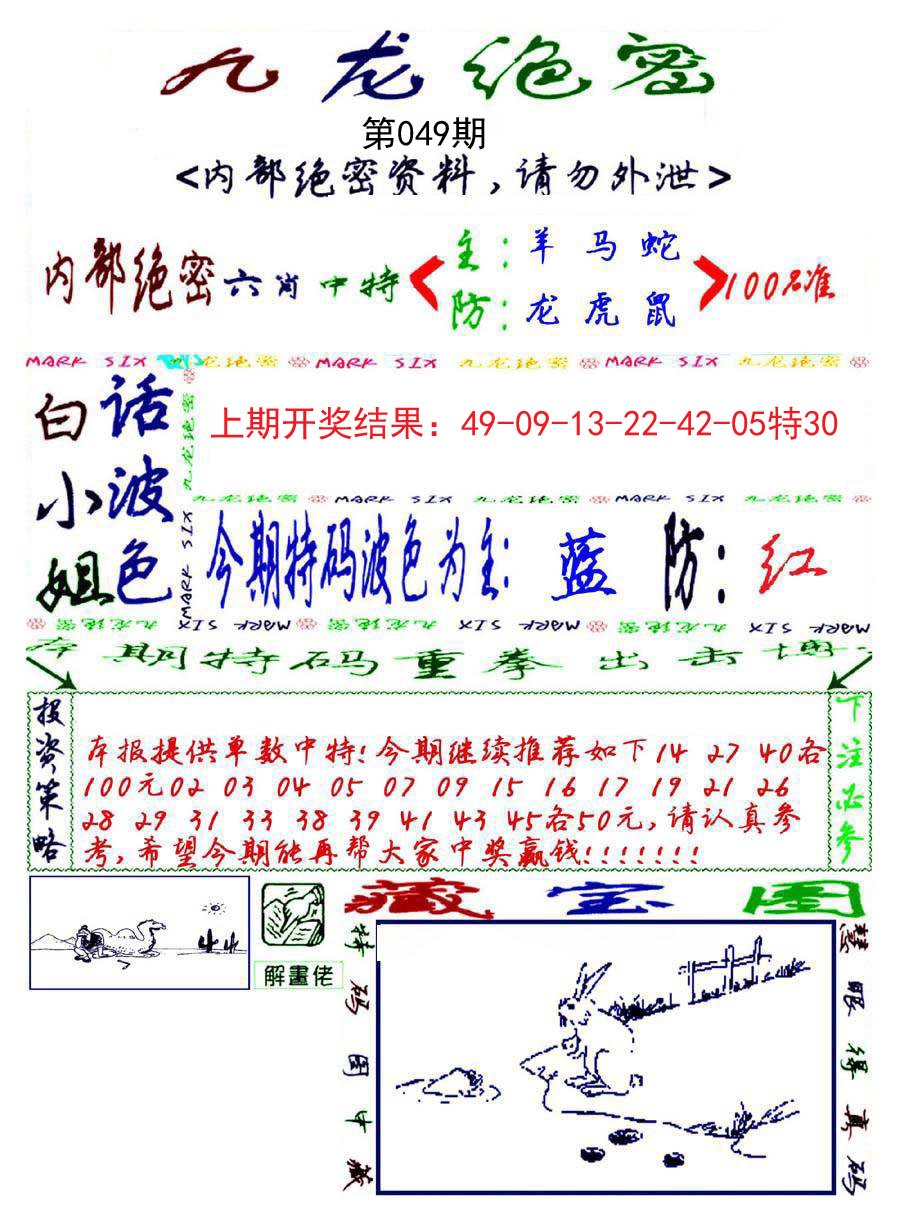 九龙绝密
第049期
<内部绝密资料,请勿外泄>
内部绝密六肖中特
主:羊马蛇
防:龙虎鼠
100%准
MARK SIX 九龙绝密 MARK SIX 九龙绝密 MARK SIX 九龙绝密
白话小波姐色
九龙绝密 MARK SIX
上期开奖结果：49-09-13-22-42-05特30
九龙绝密 MARK SIX 九龙绝密 MARK SIX 九龙绝密
今期特码波色为主:蓝 防:红
MARK SIX 九龙绝密 MARK SIX 九龙绝密 MARK SIX 九龙绝密
本期特码重拳出击博
投资策略
本报提供单数中特!今期继续推荐如下14 27 40各
100元02 03 04 05 07 09 15 16 17 19 21 26
28 29 31 33 38 39 41 43 45各50元,请认真参
考,希望今期能再帮大家中奖赢钱!!!!!!!
下注必参
解畫佬
藏宝图
特码图中藏
慧眼得真码